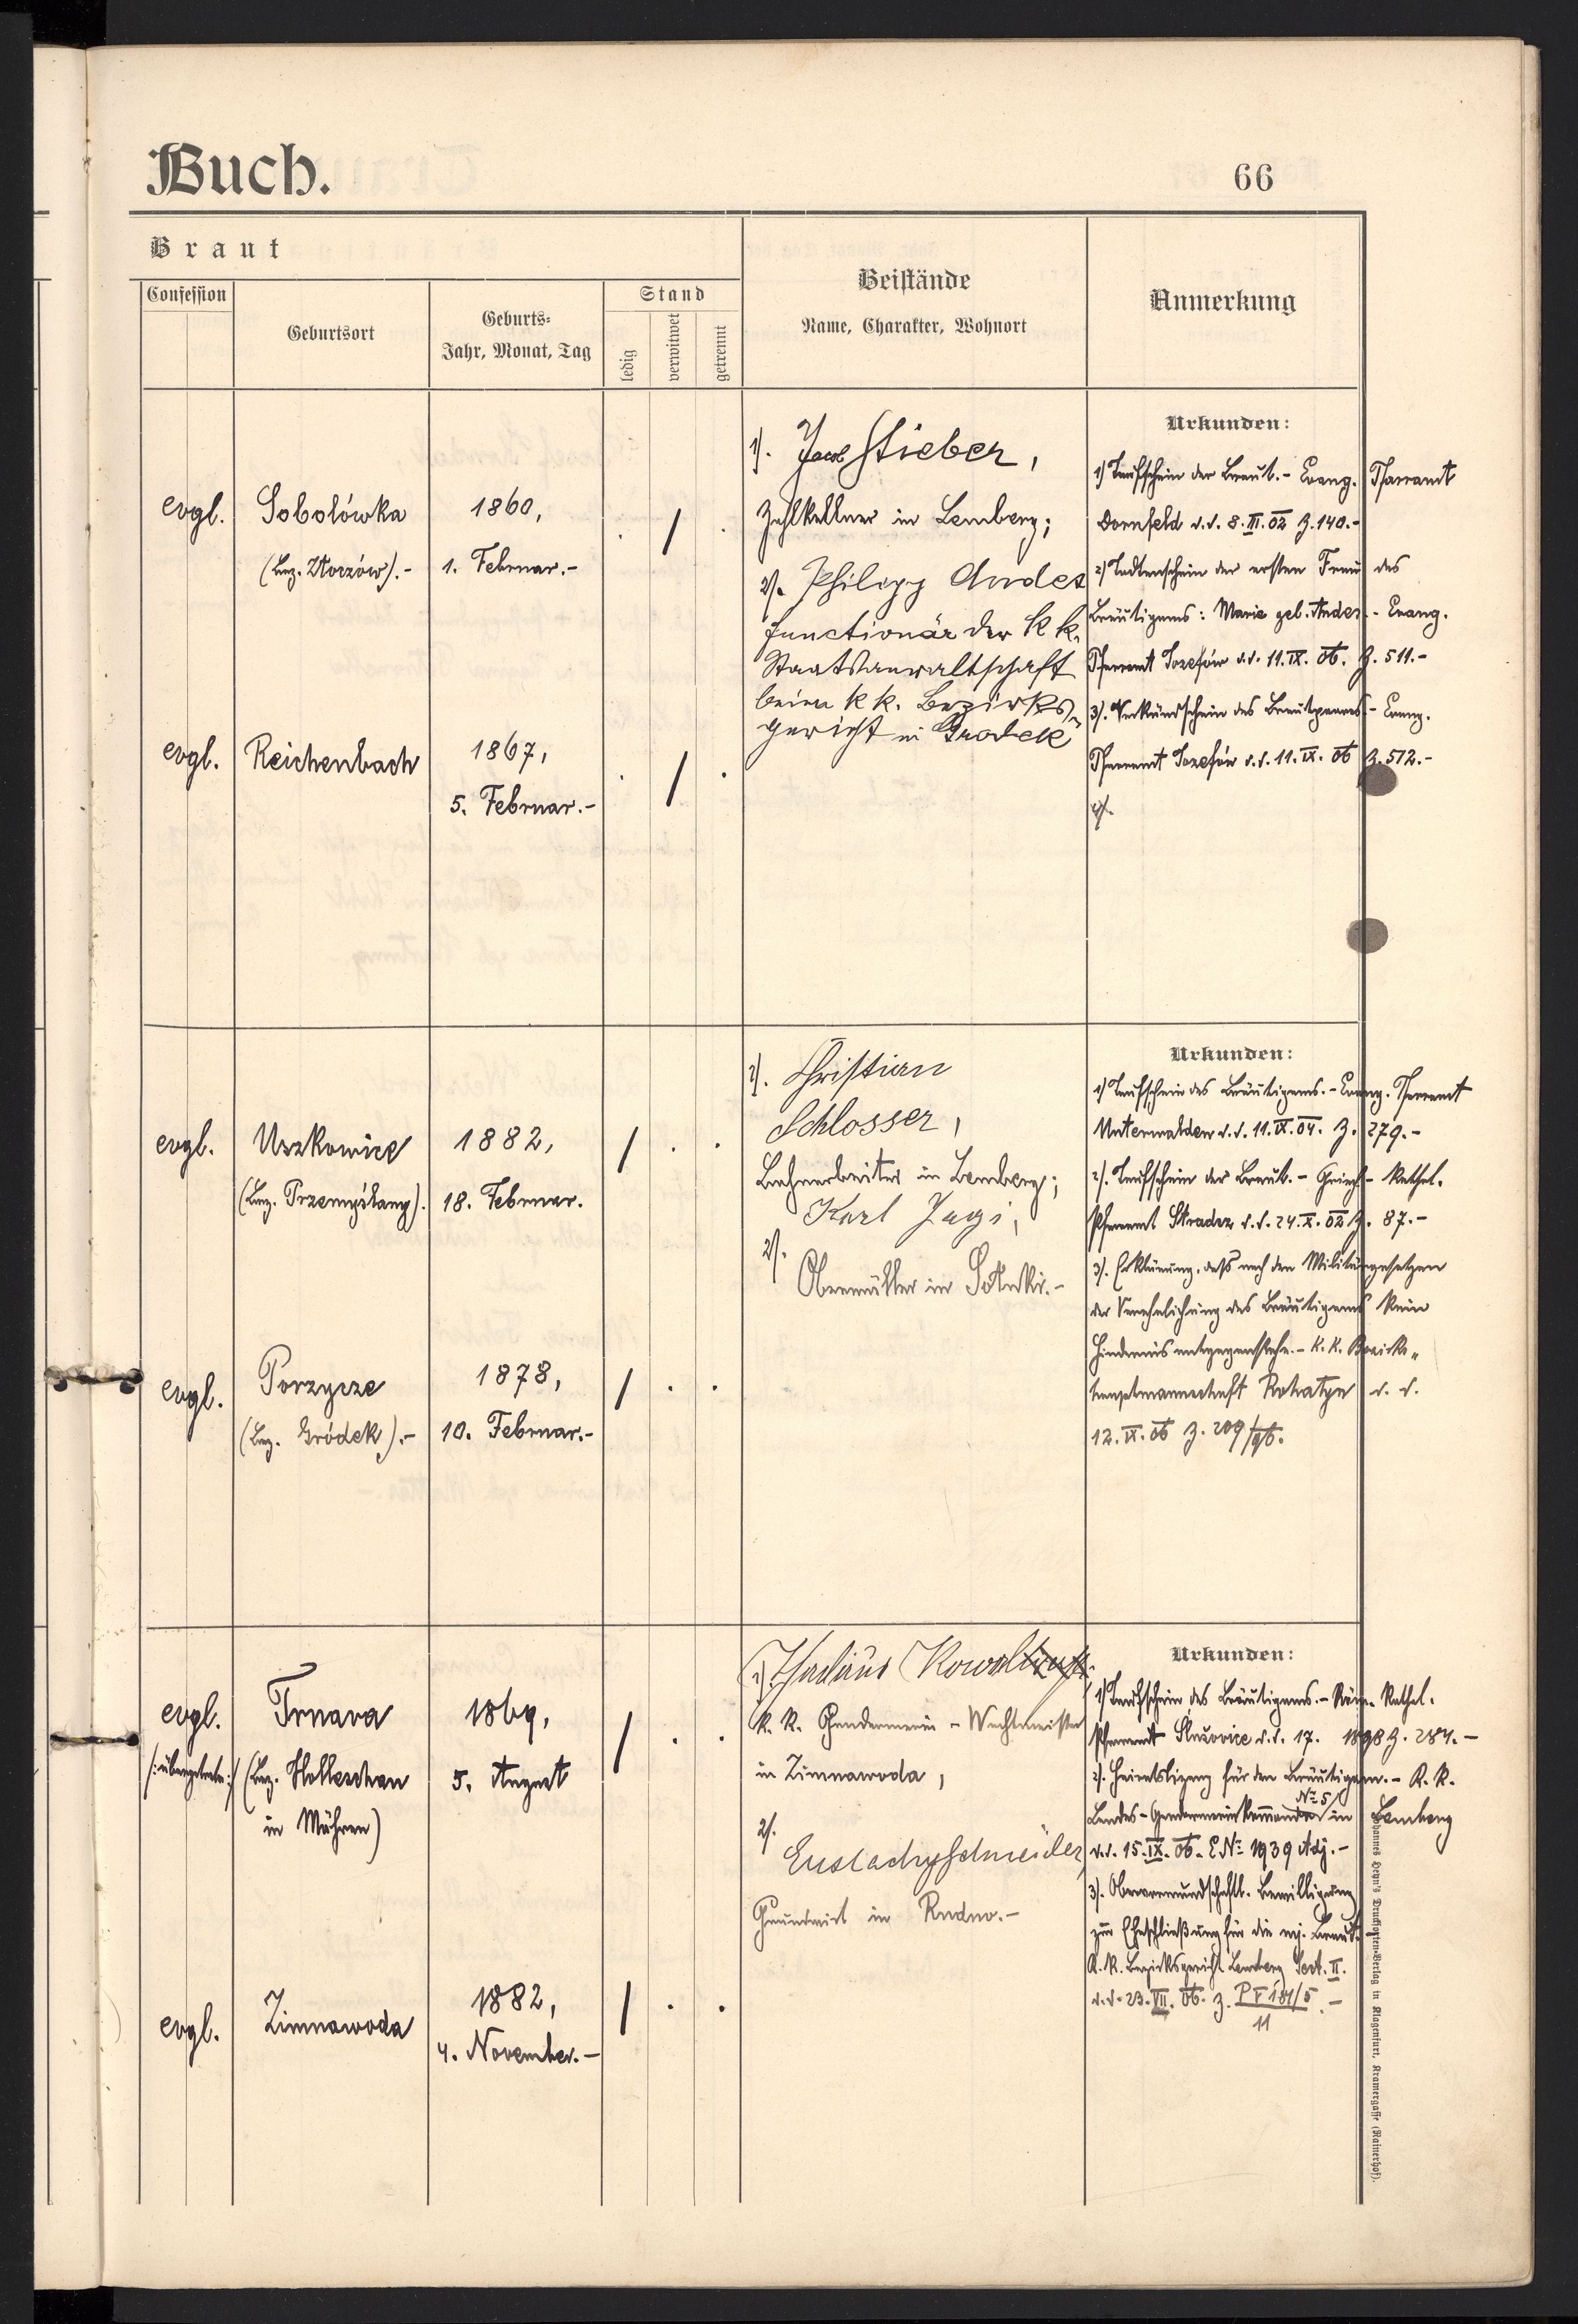 Buch.
66
Braut
Confession
Geburtsort
Geburts-
Jahr, Monat, Tag
Stand
ledig
verwitwet
getrennt
Beistände
Name, Charakter, Wohnort
Anmerkung
evgl.
Sobolówka
(Bez. Złoczów).-
1860,
1. Februar.-
evgl.
Reichenbach
1867,
5. Februar.-
1). Jacob Stieber,
Zahlkellner in Lemberg;
2). Philipp Andes
functionär der k k.
Staatsanwaltschaft
beim k k. Bezirks
gericht in Grodek
Urkunden:
1) Taufschein der Braut. - Evang. Pfarramt
Dornfeld d.d. 8. III. 02 Z. 140.-
2) Todtenschein der ersten Frau des
Bräutigams: Marie geb. Andes. - Evang.
Pfarramt Josefów d.d. 11. IX. 06. Z. 511.-
3). Verkündschein des Brautpaares - Evang.
Pfarramt Josefów d.d. 11. IX. 06 Z. 512.-
4).
evgl.
Uszkowice
(Bez. Przemyślany).
1882,
18. Februar.
evgl.
Porzycze
(Bez. Gródek).-
1878,
10. Februar.-
1). Christian
Schlosser,
Bahnarbeiter in Lemberg;
Karl Jagi,
2).
Obermüller in
Urkunden:
1) Taufschein des Bräutigams. - Evang. Pfarramt
Unterwalden d.d. 11. IX. 04. Z. 279.-
2). Taufschein der Braut. - Griech - Kathol.
Pfarramt Stradcz d.d. 24. X. 02 Z. 87.-
3). Erklärung, daß nach den Militärgesetzen
der Verehelichung des Bräutigams kein
Hindernis entgegenstehe. - K. K. Bezirks„
hauptmannschaft Rohatyn d. d.
12. IX. 06 Z. 209/96.
evgl.
/:übergetreten:/
Trnava
(Bez. Holleschau
in Mähren)
1869,
5. August
evgl.
Zimnawoda
1882,
4. November.-
1). Thadäus
K. K. Gendarmerie - Wachtmeister
in Zimnawoda,
2).
Eustachy Schneider
Grundwirt in Rudno.-
Urkunden:
1) Taufschein des Bräutigams. - Röm. Kathol.
Pfarramt Slušovice d.d. 17. 1898 Z. 284.-
2). Heiratslizenz für den Bräutigam. - K. K.
Landes-Gendarmeriekommando No 5 in Lemberg
d.d. 15. IX. 06. E No 1939 Adj.-
3). Obervormundschaftl. Bewilligung
zur Eheschließung für die mj. Braut.-
K. K. Bezirksgericht Lemberg Sect. II.
d.d. 23. VII. 06. Z. P V 181/5.-
11
Johannes Heyn's Drucksorten-Verlag in Klagenfurt, Kramergasse (Rainerhof).